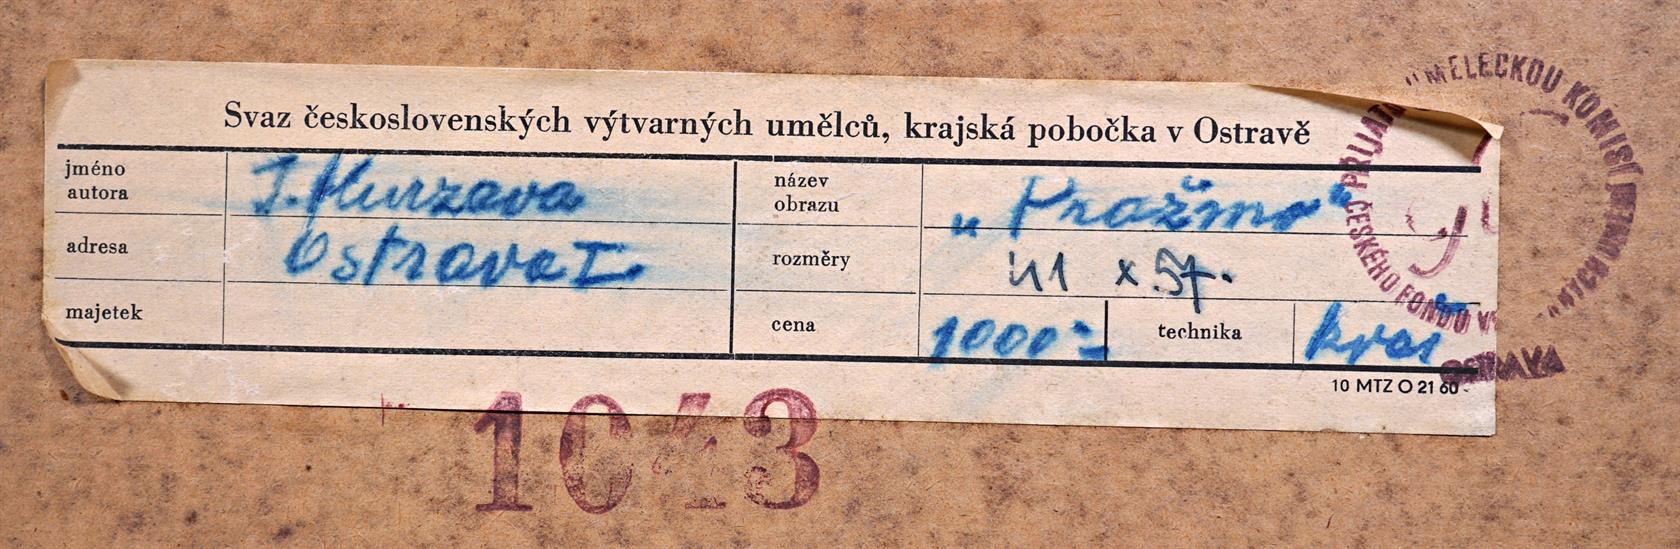 Svaz československých výtvarných umělců, krajská pobočka v Ostravě
jméno autora J. Murzava
adresa Ostrava I
majetek
název obrazu „Pražmo"
rozměry 41 x 57.
cena 1000.-
technika kvaš
10 MTZ O 21 60
PŘIJATO UMĚLECKOU KOMISÍ
ČESKÉHO FONDU
OSTRAVA
1043